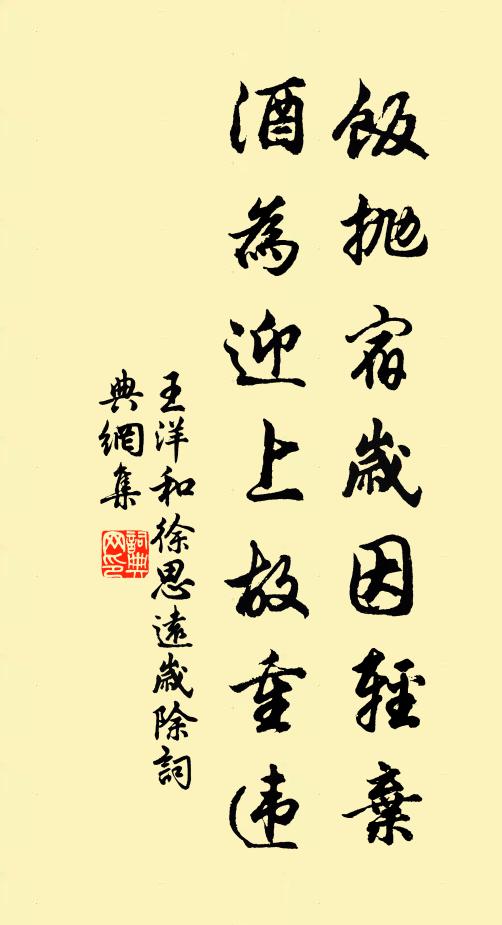 飯抛宿歲因輕棄
酒為迎上故重违
王洋和徐思遠歲除詞
典網集
詞典网印